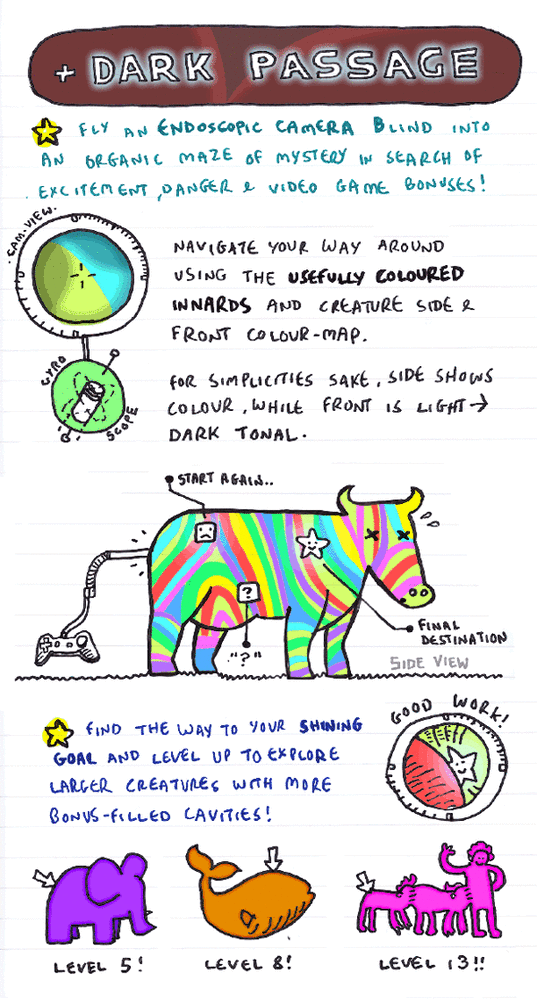 + DARK PASSAGE
FLY AN ENDOSCOPIC CAMERA BLIND INTO
AN ORGANIC MAZE OF MYSTERY IN SEARCH OF
EXCITEMENT, DANGER & VIDEO GAME BONUSES!
CAM-VIEW.
NAVIGATE YOUR WAY AROUND
USING THE USEFULLY COLOURED
INNARDS AND CREATURE SIDE &
FRONT COLOUR-MAP.
GYRO
SCOPE
FOR SIMPLICITIES SAKE, SIDE SHOWS
COLOUR, WHILE FRONT IS LIGHT→
DARK TONAL.
START AGAIN..
?
"?"
FINAL
DESTINATION
SIDE VIEW
FIND THE WAY TO YOUR SHINING
GOAL AND LEVEL UP TO EXPLORE
LARGER CREATURES WITH MORE
BONUS-FILLED CAVITIES!
GOOD WORK!
LEVEL 5!
LEVEL 8!
LEVEL 13!!